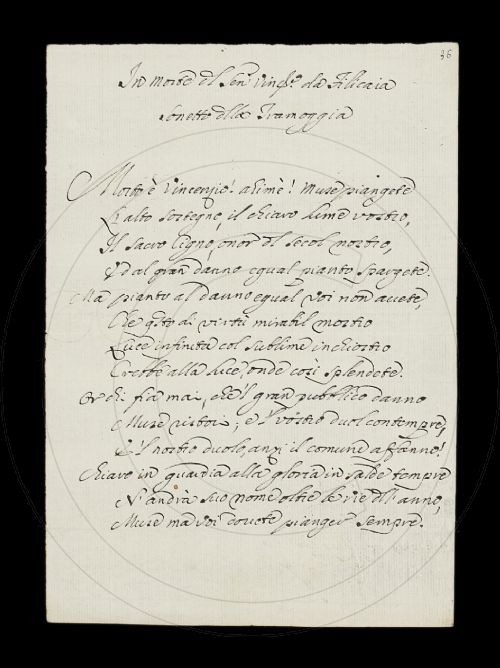 36
In Morte dl Senr. Vincs. da Filicaia
Sonetto dlla Tramoggia
Morto è Vincenzio! ahimè! Muse piangete
L'alto sostegno, il chiaro lume vostro,
Il sacro Cigno, onor dl secol nostro,
Ed al gran danno egual pianto spargete.
Ma pianto al danno egual voi non avete,
Che qsto di virtù mirabil mostro
Luce infinita col sublime inchiostro
Crebbe alla luce, onde così splendete.
Or chi fia mai, che'l gran pubblico danno
Muse ristori; e'l vostro duol contempre,
E'l nostro duolo, anzi il comune affanno!
Chiaro in guardia alla gloria in salde tempre
N'andrà suo nome oltre le vie dll'anno,
Muse ma voi dovete pianger sempre.